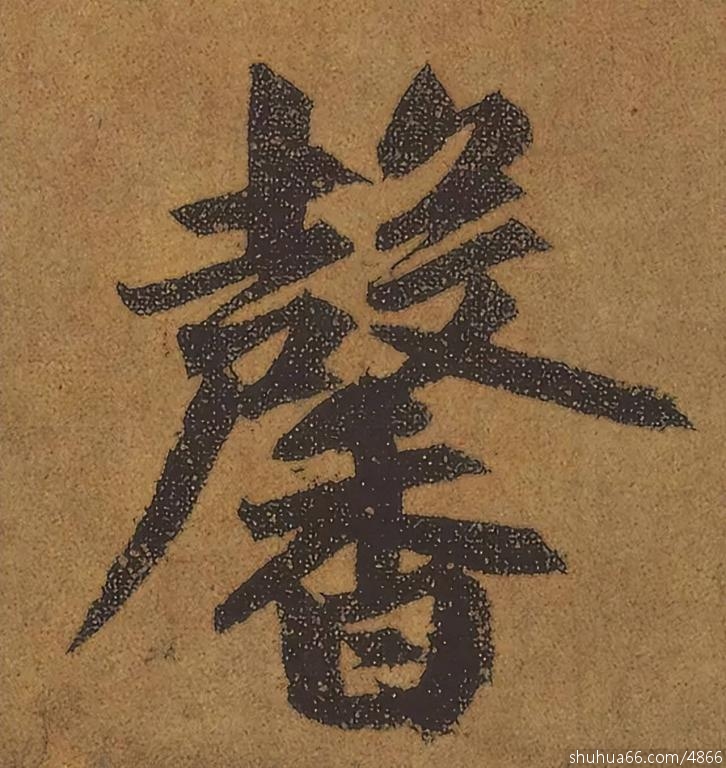 馨
shuhua66.com/4866